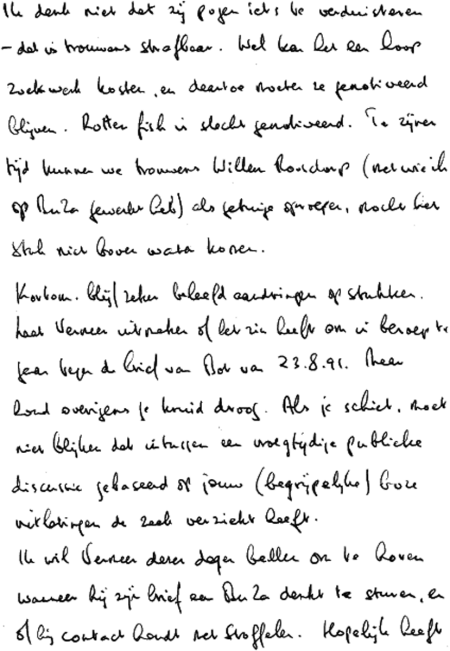 Ik denk niet dat zij pogen iets te verduisteren
– dat is trouwens strafbaar. Wel kan het een hoop
zoekwerk kosten, en daartoe moeten ze gemotiveerd
blijven. Rotten fish is slecht gemotiveerd. Te zijner
tijd kunnen we trouwens Willem (met wie ik
op BuZa gewerkt heb) als getuige oproepen, mocht het
stuk niet boven water komen.
Kortom: blijf zeker beleefd aandringen op stukken.
Laat Vermeer uitzoeken of het zin heeft om in beroep te
gaan tegen de brief van Bot van 23.8.91. Maar
houd overigens je kruid droog. Als je schiet, moet
niet blijken dat intussen een vroegtijdige publieke
discussie gebaseerd op jouw (begrijpelijke) boze
uitlatingen de zaak verziekt heeft.
Ik wil Vermeer dezer dagen bellen om te horen
wanneer hij zijn brief aan BuZa denkt te sturen, en
of hij contact houdt met Stoffelen. Hopelijk heeft